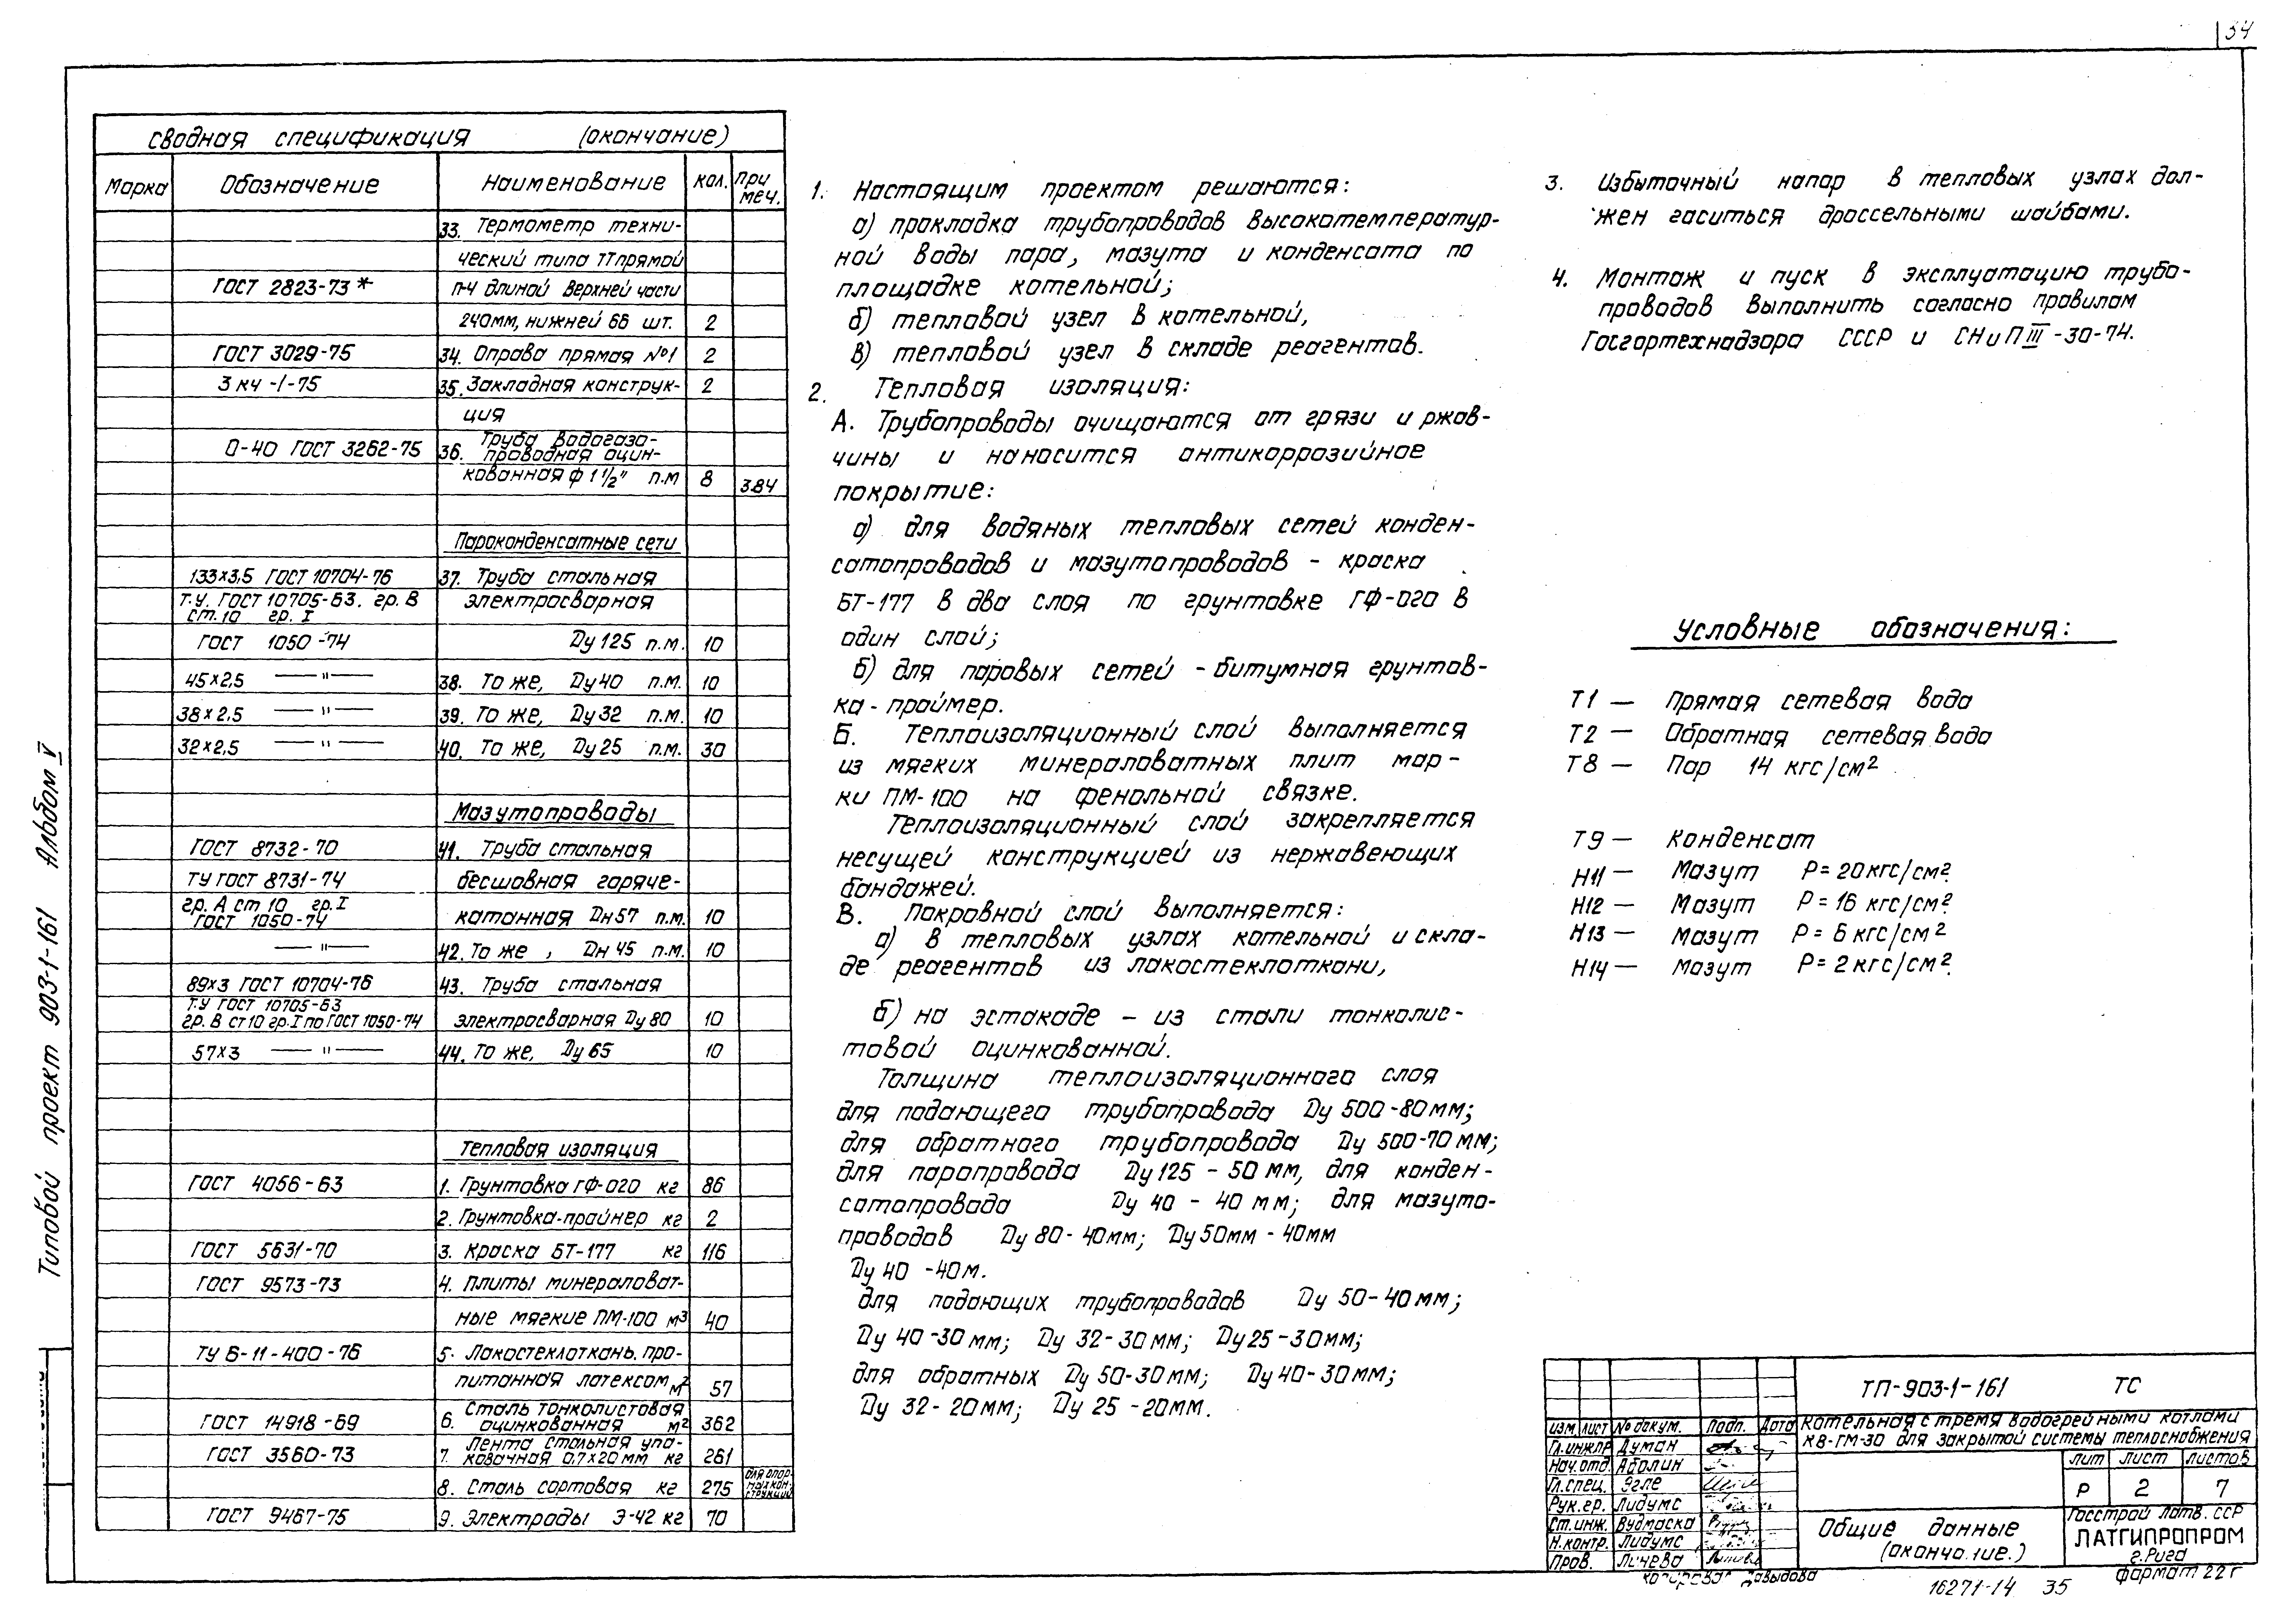 34
Типовой проект 903-1-161 Альбом V
сводная спецификация (окончание)
Марка Обозначение Наименование кол. При меч.
33. Термометр техни-
ческий типа ТТ прямой
ГОСТ 2823-73* П-4 длиной верхней части
240мм, нижней 66 шт. 2
ГОСТ 3029-75 34. Оправа прямая №1 2
3 кч-1-75 35. Закладная конструк- 2
ция
О-40 ГОСТ 3262-75 36. Труба водогазо-
проводная оцин-
кованная ф 1 1/2" п.м 8 3.84
Пароконденсатные сети
133х3,5 ГОСТ 10704-76 37. Труба стальная
Т.У. ГОСТ 10705-63. гр. В электросварная
ст.10 гр. I
ГОСТ 1050-74 Ду 125 п.м. 10
45х2,5 —"— 38. То же, Ду 40 п.м. 10
38х2,5 —"— 39. То же, Ду 32 п.м. 10
32х2,5 —"— 40. То же, Ду 25 п.м. 30
Мазутопроводы
ГОСТ 8732-70 41. Труба стальная
ТУ ГОСТ 8731-74 бесшовная горяче-
гр. А ст 10 гр. I
ГОСТ 1050-74 катанная Дн 57 п.м. 10
—"— 42. То же, Дн 45 п.м. 10
89х3 ГОСТ 10704-76 43. Труба стальная
Т.У ГОСТ 10705-63
гр. В ст 10 гр. I по ГОСТ 1050-74 электросварная Ду 80 10
57х3 —"— 44. То же, Ду 65 10
Тепловая изоляция
ГОСТ 4056-63 1. Грунтовка ГФ-020 кг 86
2. Грунтовка-праймер кг 2
ГОСТ 5631-70 3. Краска БТ-177 кг 116
ГОСТ 9573-73 4. Плиты минераловат-
ные мягкие ПМ-100 м3 40
ТУ 6-11-400-76 5. Лакостеклоткань, про-
питанная латексом м2 57
ГОСТ 14918-69 6. Сталь тонколистовая
оцинкованная м2 362
ГОСТ 3560-73 7. Лента стальная упа-
ковочная 0,7х20мм кг 261
8. Сталь сортовая кг 275 для опор-
ных кон-
струкций
ГОСТ 9467-75 9. Электроды Э-42 кг 70
1. Настоящим проектом решаются:
а) прокладка трубопроводов высокотемператур-
ной воды пара, мазута и конденсата по
площадке котельной;
б) тепловой узел в котельной,
в) тепловой узел в складе реагентов.
2. Тепловая изоляция:
А. Трубопроводы очищаются от грязи и ржав-
чины и наносится антикоррозийное
покрытие:
а) для водяных тепловых сетей конден-
сатопроводов и мазутопроводов - краска
БТ-177 в два слоя по грунтовке ГФ-020 в
один слой;
б) для паровых сетей - битумная грунтов-
ка - праймер.
Б. Теплоизоляционный слой выполняется
из мягких минераловатных плит мар-
ки ПМ-100 на фенольной связке.
Теплоизоляционный слой закрепляется
несущей конструкцией из нержавеющих
бандажей.
В. Покровной слой выполняется:
а) в тепловых узлах котельной и скла-
де реагентов из лакостеклоткани,
б) на эстакаде - из стали тонколис-
товой оцинкованной.
Толщина теплоизоляционного слоя
для подающего трубопровода Ду 500-80мм;
для обратного трубопровода Ду 500-70мм;
для паропровода Ду 125 - 50 мм, для конден-
сатопровода Ду 40 - 40 мм; для мазуто-
проводов Ду 80-40мм; Ду 50мм - 40мм
Ду 40 -40м.
для подающих трубопроводов Ду 50-40мм;
Ду 40-30мм; Ду 32-30мм; Ду 25-30мм;
для обратных Ду 50-30мм; Ду 40-30мм;
Ду 32-20мм; Ду 25-20мм.
3. Избыточный напор в тепловых узлах дол-
жен гаситься дроссельными шайбами.
4. Монтаж и пуск в эксплуатацию трубо-
проводов выполнить согласно правилам
Госгортехнадзора СССР и СНиП III-30-74.
Условные обозначения:
Т1 — Прямая сетевая вода
Т2 — Обратная сетевая вода
Т8 — Пар 14 кгс/см2
Т9 — Конденсат
Н11 — Мазут Р=20кгс/см2
Н12 — Мазут Р=16 кгс/см2
Н13 — Мазут Р=6 кгс/см2
Н14 — Мазут Р=2кгс/см2
ТП-903-1-161 ТС
изм. лист № докум. Подп. Дата
Котельная с тремя водогрейными котлами
КВ-ГМ-30 для закрытой системы теплоснабжения
Гл.инж.пр Думан
Нач.отд. Аболин
Гл.спец. Эгле
Рук.гр. Лидумс
Ст.инж. Вудмаска
Н.контр. Лидумс
Пров. Личева
лит лист листов
Р 2 7
Общие данные
(оконча.ие.)
Госстрой Латв. ССР
ЛАТГИПРОПРОМ
г.Рига
Копировал Давыдова
16271-14 35
формат 22г